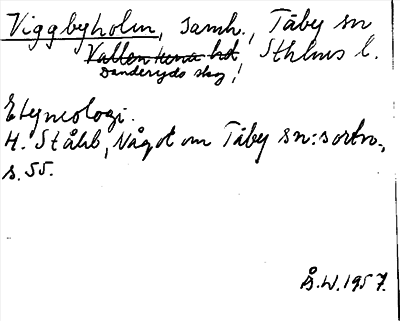 Viggbyholm, samh., Täby sn
Vallentuna hd, Sthlms l.
Danderyds skg!
Etymologi.
H. Ståhl, Något om Täby sn:s ortn.,
s. 55.
Å.W. 1957.